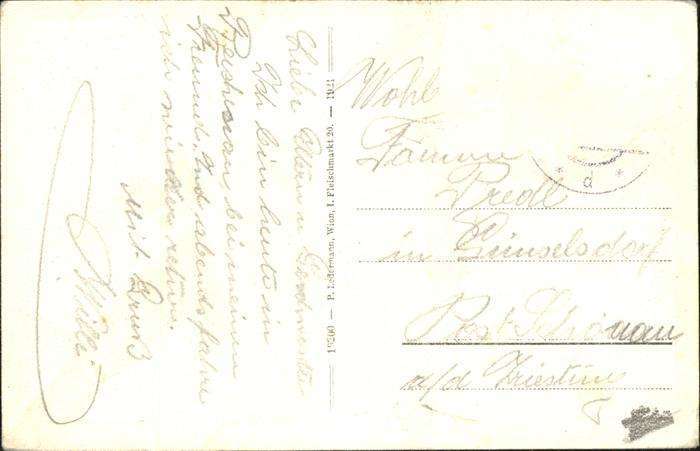 Liebe Eltern u. Geschwister
Ich bin heute in
Reichenau, bei meinem
Freund. Und abends fahre
ich wieder retour.
Mit Gruß
Willi
17200 — P. Ledermann, Wien, I. Fleischmarkt 20. — 1921
Wohl
Famm
Predl
in Günselsdorf
Post Schönau
a/d Triesting
d